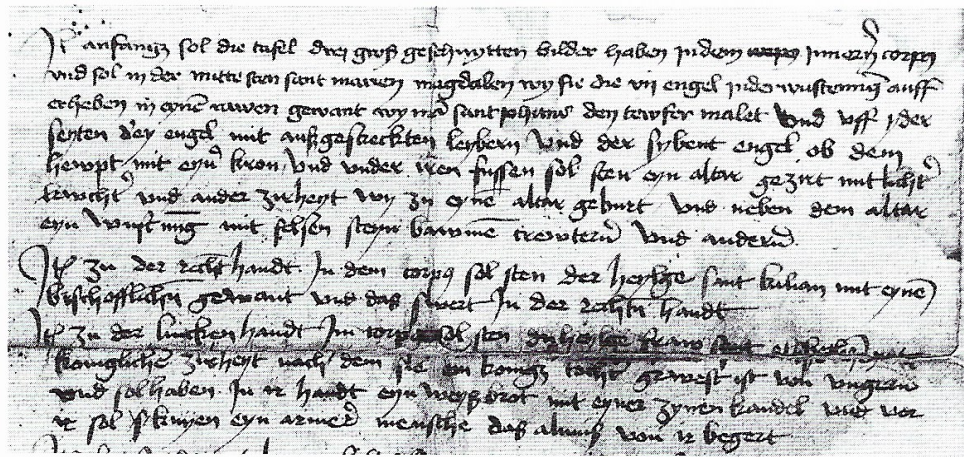 It anfangs sol die tafel drej groß geschnytten bilder haben in dem inneren corpus
vnd sol in der mitte sten sant marien magdalen wy sie die vii engel in der wustenung auff
erheben in eynē rawen gewant wy mā sant Johans den tewfer malet vnd vff yder
seyten drey engel mit außgestreckten leybern vnd der sybent engel ob dem
hewpt mit eyner kron vnd vnder iren fussen sol sten eyn altar gezirt mit
vnd ander zirheyt wy zu eynē altar geburt vnd neben dem altar
eyn wustnung mit felsen steyn bawmē krewtern vnd andern
It zu der recht handt In dem corpus sol sten der heylige sant kilian mit eynē
bischofflichen gewant vnd daß swert In der rechtn handt
It zu der lincken handt Im corpus sol sten die heylige fraw sant
koniglicher zirheyt nach dem sie ein konigs tocht gewest ist von vngern
vnd sol haben In ir handt eyn weyß brot mit eyner zynen kandel vnd vor
ir sol knyen eyn armer mensche das almuß von ir begert